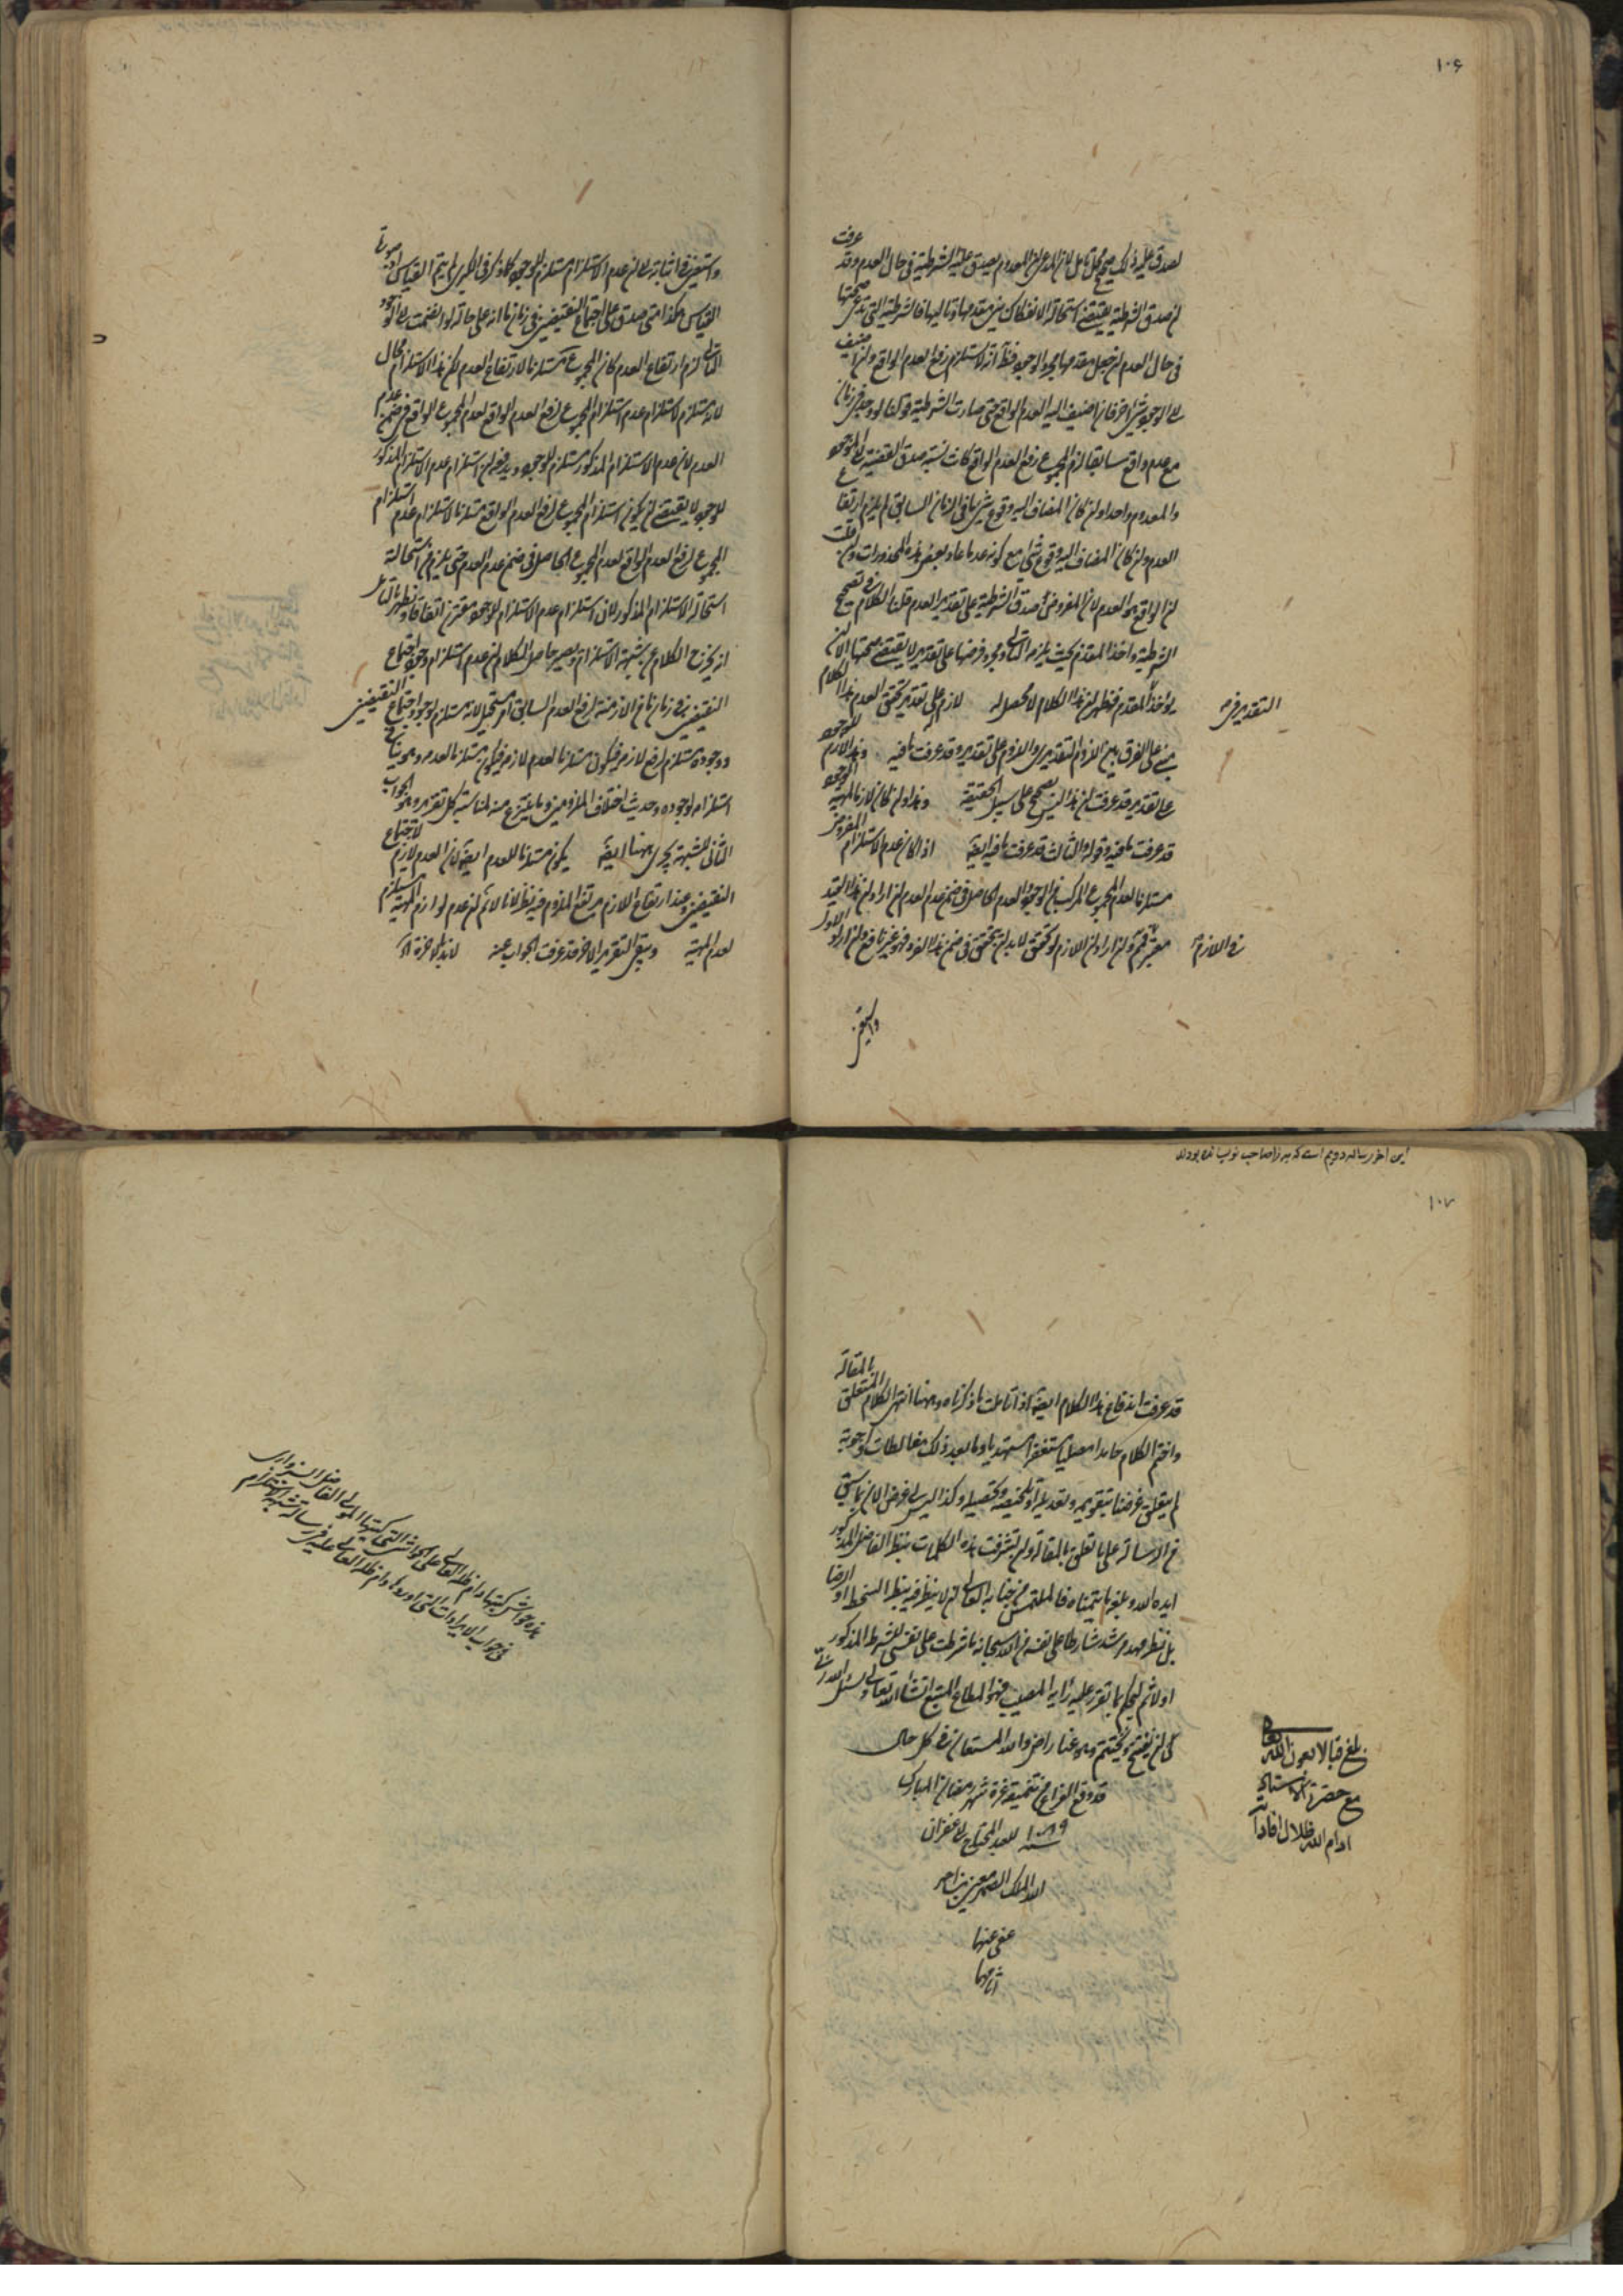 ١٠٦
عرفت
لصدق عليه ذلك صحيح محل تامل لان المدعى ان المعدوم يصدق عليه الشرطية في حال العدم وقد
ان صدق الشرطية يقتضي استحالة الانفكاك بين مقدمها وتاليها فالشرطية التي تدعى صحتها
في حال العدم ان جعل مقدمها مجرد الوجود فظ انه لا يستلزم رفع العدم الواقع وان اضيف
الى الوجود شيء اخر فان اضيف اليه العدم الواقع حتى صارت الشرطية قولنا لو وجد في زمان
مع عدم واقع سابقا لزم المجموع رفع العدم الواقع كانت نسبة صدق القضية الى الموجود
والمعدوم واحدا وان كان المضاف اليه وقوع شيء ما في الزمان السابق لم يلزم ارتفاع
العدم وان كان المضاف اليه وقوع شيء مع كونه عدما عاد بعض هذه المحذورات وان قلت
ان الواقع هو العدم لان المفروض صدق الشرطية على تقدير العدم قلنا الكلام في تصحيح
الشرطية واخذ المقدم بحيث يلزمه التالي ومجرد فرضها على تقدير لا يقتضي صحتها الا ان
يؤخذ المقدم فظهر ان هذا الكلام لا محصل له لازم على تقدير تحقق العدم هذا الكلام
التقدير في
مبني على الفرق بين اللزوم التقديري واللزوم على تقدير وقد عرفت ما فيه وهذا لازم للوجود
على تقدير قد عرفت ان هذا ليس بصحيح على سبيل الحقيقة وهذا وان كان لازما لمهية الوجود
قد عرفت ما فيه وقوله والثالث قد عرفت ما فيه ايضا اذا كان عدم الاستلزام المفروض
مستلزما لعدم المجموع المركب من الوجود والعدم الحاصل في ضمن عدم العدم ان اراد ان هذا القيد
معتبر في اللازم فم وان اراد ان اللازم لو تحقق لابد ان يتحقق في ضمن هذا الفرد فهو غير نافع وان اراد الاول
واستعين في اثباته بان عدم الاستلزام مستلزم للوجود كما ذكر في الكبرى لم يتم القياس اذ صورة
القياس هكذا متى صدق على اجتماع النقيضين في زمان ما انه على حالة لو انضمت الى الوجود
التالي لزم ارتفاع العدم كان المجموع مستلزما لارتفاع العدم لكن هذا الاستلزام محال
لانه مستلزم لاستلزام عدم استلزام المجموع لرفع العدم الواقع لعدم المجموع الواقع في ضمن عدم
العدم لان عدم الاستلزام المذكور مستلزم للوجود ويدفعه ان استلزام عدم الاستلزام المذكور
للوجود لا يقتضي ان يكون استلزام المجموع لرفع العدم الواقع مستلزما لاستلزام عدم استلزام
المجموع لرفع العدم الواقع لعدم المجموع الحاصل في ضمن عدم العدم حتى يلزم من استحالة
استحالة الاستلزام المذكور لان استلزام عدم الاستلزام للوجود مقترن اتفاقا ويظهر بالتامل
انه يخرج الكلام عن شبهة الاستلزام ويصير حاصل الكلام ان عدم استلزام وجود اجتماع
النقيضين في زمان ما من الازمنة لرفع العدم السابق امر مستحيل لانه مستلزم لوجود اجتماع النقيضين
ووجوده مستلزم لرفع لازمه فيكون مستلزما لعدم لازمه فيكون مستلزما لعدمه وهو ينافي
استلزامه لوجوده وحديث اختلاف الملزومين وما ينتزع منه لمناسبة كل تقدير وهو الجواب
الثاني للشبهة يجري ههنا ايضا يكون مستلزما للعدم ايضا لان العدم لازم لاجتماع
النقيضين وعند ارتفاع اللازم يرتفع الملزوم فيه نظر لانا لا نم ان عدم لوازم المهية مستلزم
لعدم المهية ويبقى التقرير الاخر وقد عرفت الجواب عنه
این اخر رساله دویم است که میرزا صاحب نویسانده بودند
١٠٧
قد عرفت اندفاع هذا الكلام ايضا اذا تاملت ما ذكرناه وههنا انتهى الكلام المتعلق بالمقالة
واختم الكلام حامدا مصليا مستغفرا مستهديا وما بعد ذلك مغالطات واجوبة
لم يتعلق غرضنا بتقويمه وتعديله او تلخيصه وتحصيله وكذا ليس لي غرض الان بما بقي
من الرسالة على ما تعلق بالمقالة وان تشرفت هذه الكلمات بنظر الفاضل المذكور
ايده الله وبلغه ما يتمناه فالملتمس من جنابه العالي ان لا ينظر فيه بنظر السخط او الرضا
بل بنظر مهد مرشد شارطا على نفسه من الله سبحانه ما شرطت على نفسي للشرط المذكور
اولا ثم ليحكم بما تقرر عليه رايه المصيب فهو المطاع المتبع ان شاء الله تعالى ونسئل الله تعالى
كما ان يفتح ويختتم وهو عنا راض والله المستعان في كل حال
قد وقع الفراغ من تنميقه غرة شهر رمضان المبارك
سنة ١٠٨٩ للعبد المحتاج الى غفران
الله الملك الصمد معين بن احمد
عفى عنهما
اثامهما
بلغ قبالا بعون الله تعالى
مع حضرة الاستاد
ادام الله ظلال افاداته
هذه حواشي كتبها دام ظله العالي على الحواشي التي كتبها المولى الفاضل السبزواري
في جواب الايرادات التي اوردها دام ظله العالي عليه في رسالة شبهة الاستلزام